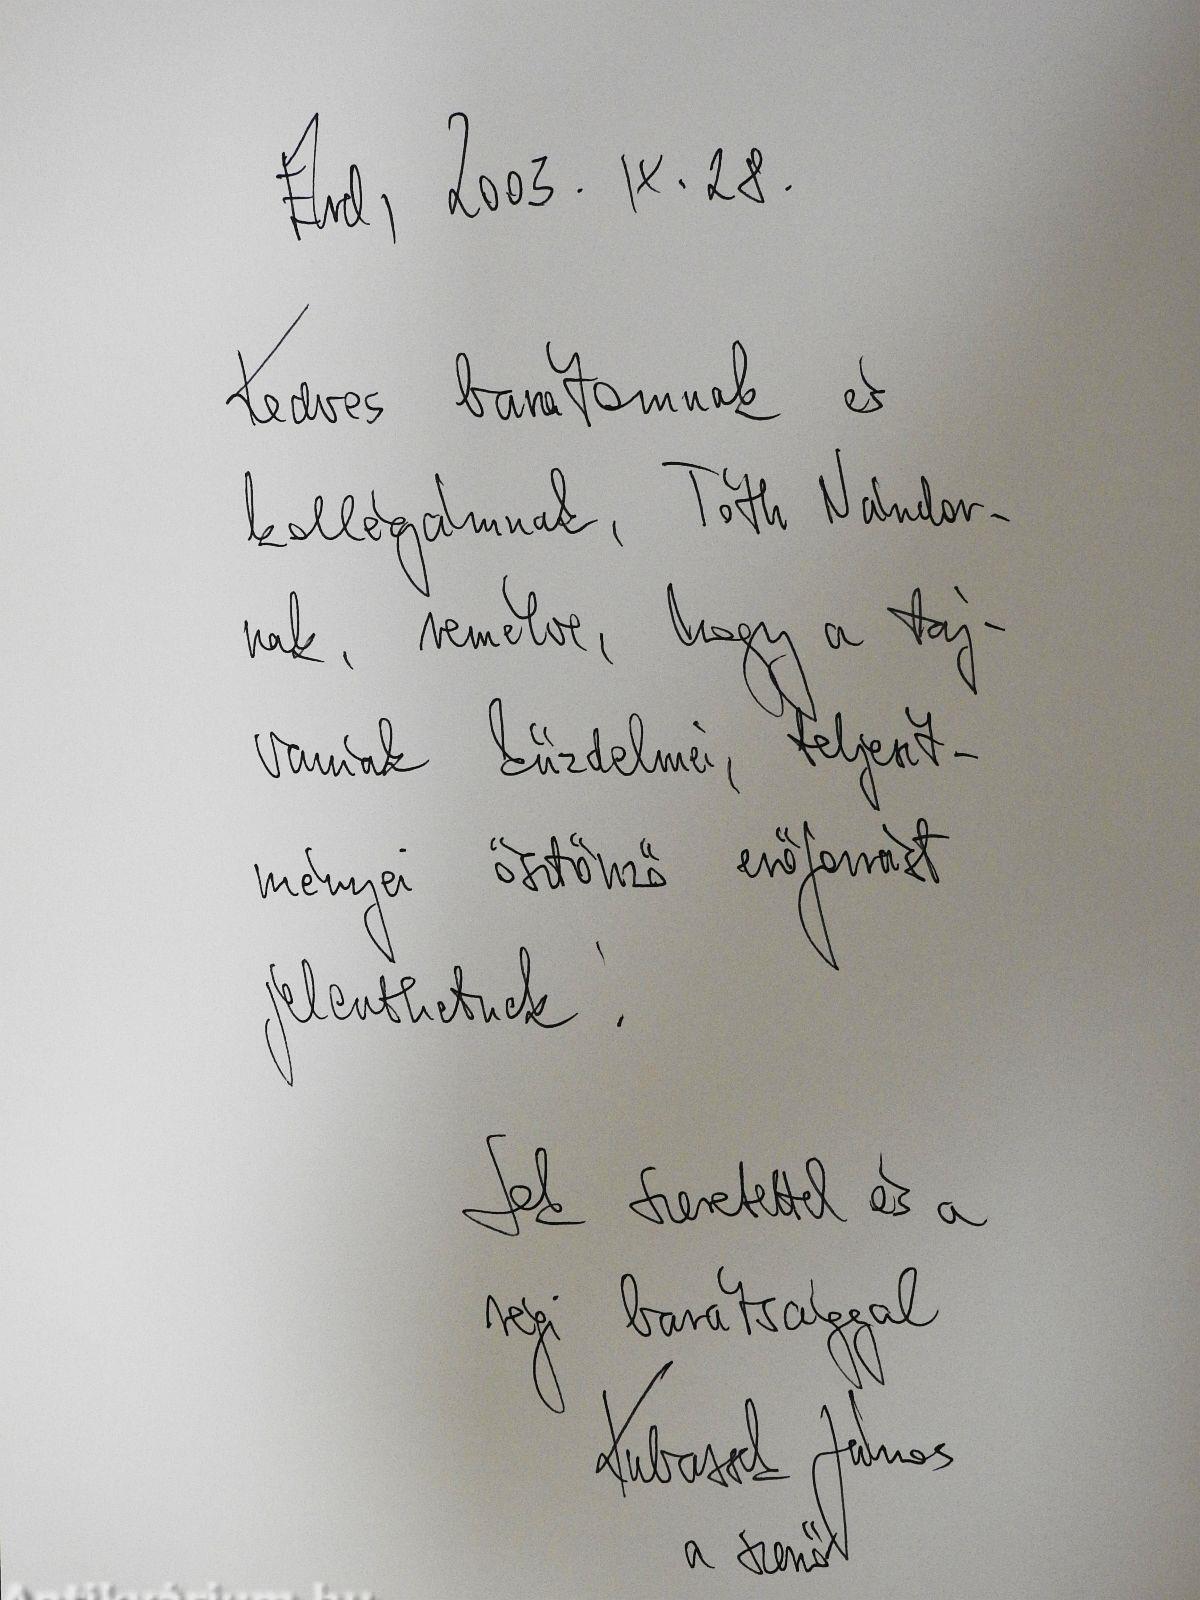 Érd, 2003. IX. 28.
Kedves barátomnak és
kollégámnak, Tóth Nándor-
nak, remélve, hogy a taj-
vaniak küzdelmei, teljesít-
ményei ösztönző erőforrást
jelenthetnek!
Sok szeretettel és a
régi barátsággal
Kubassek János
a szerző
Antikvárium.hu